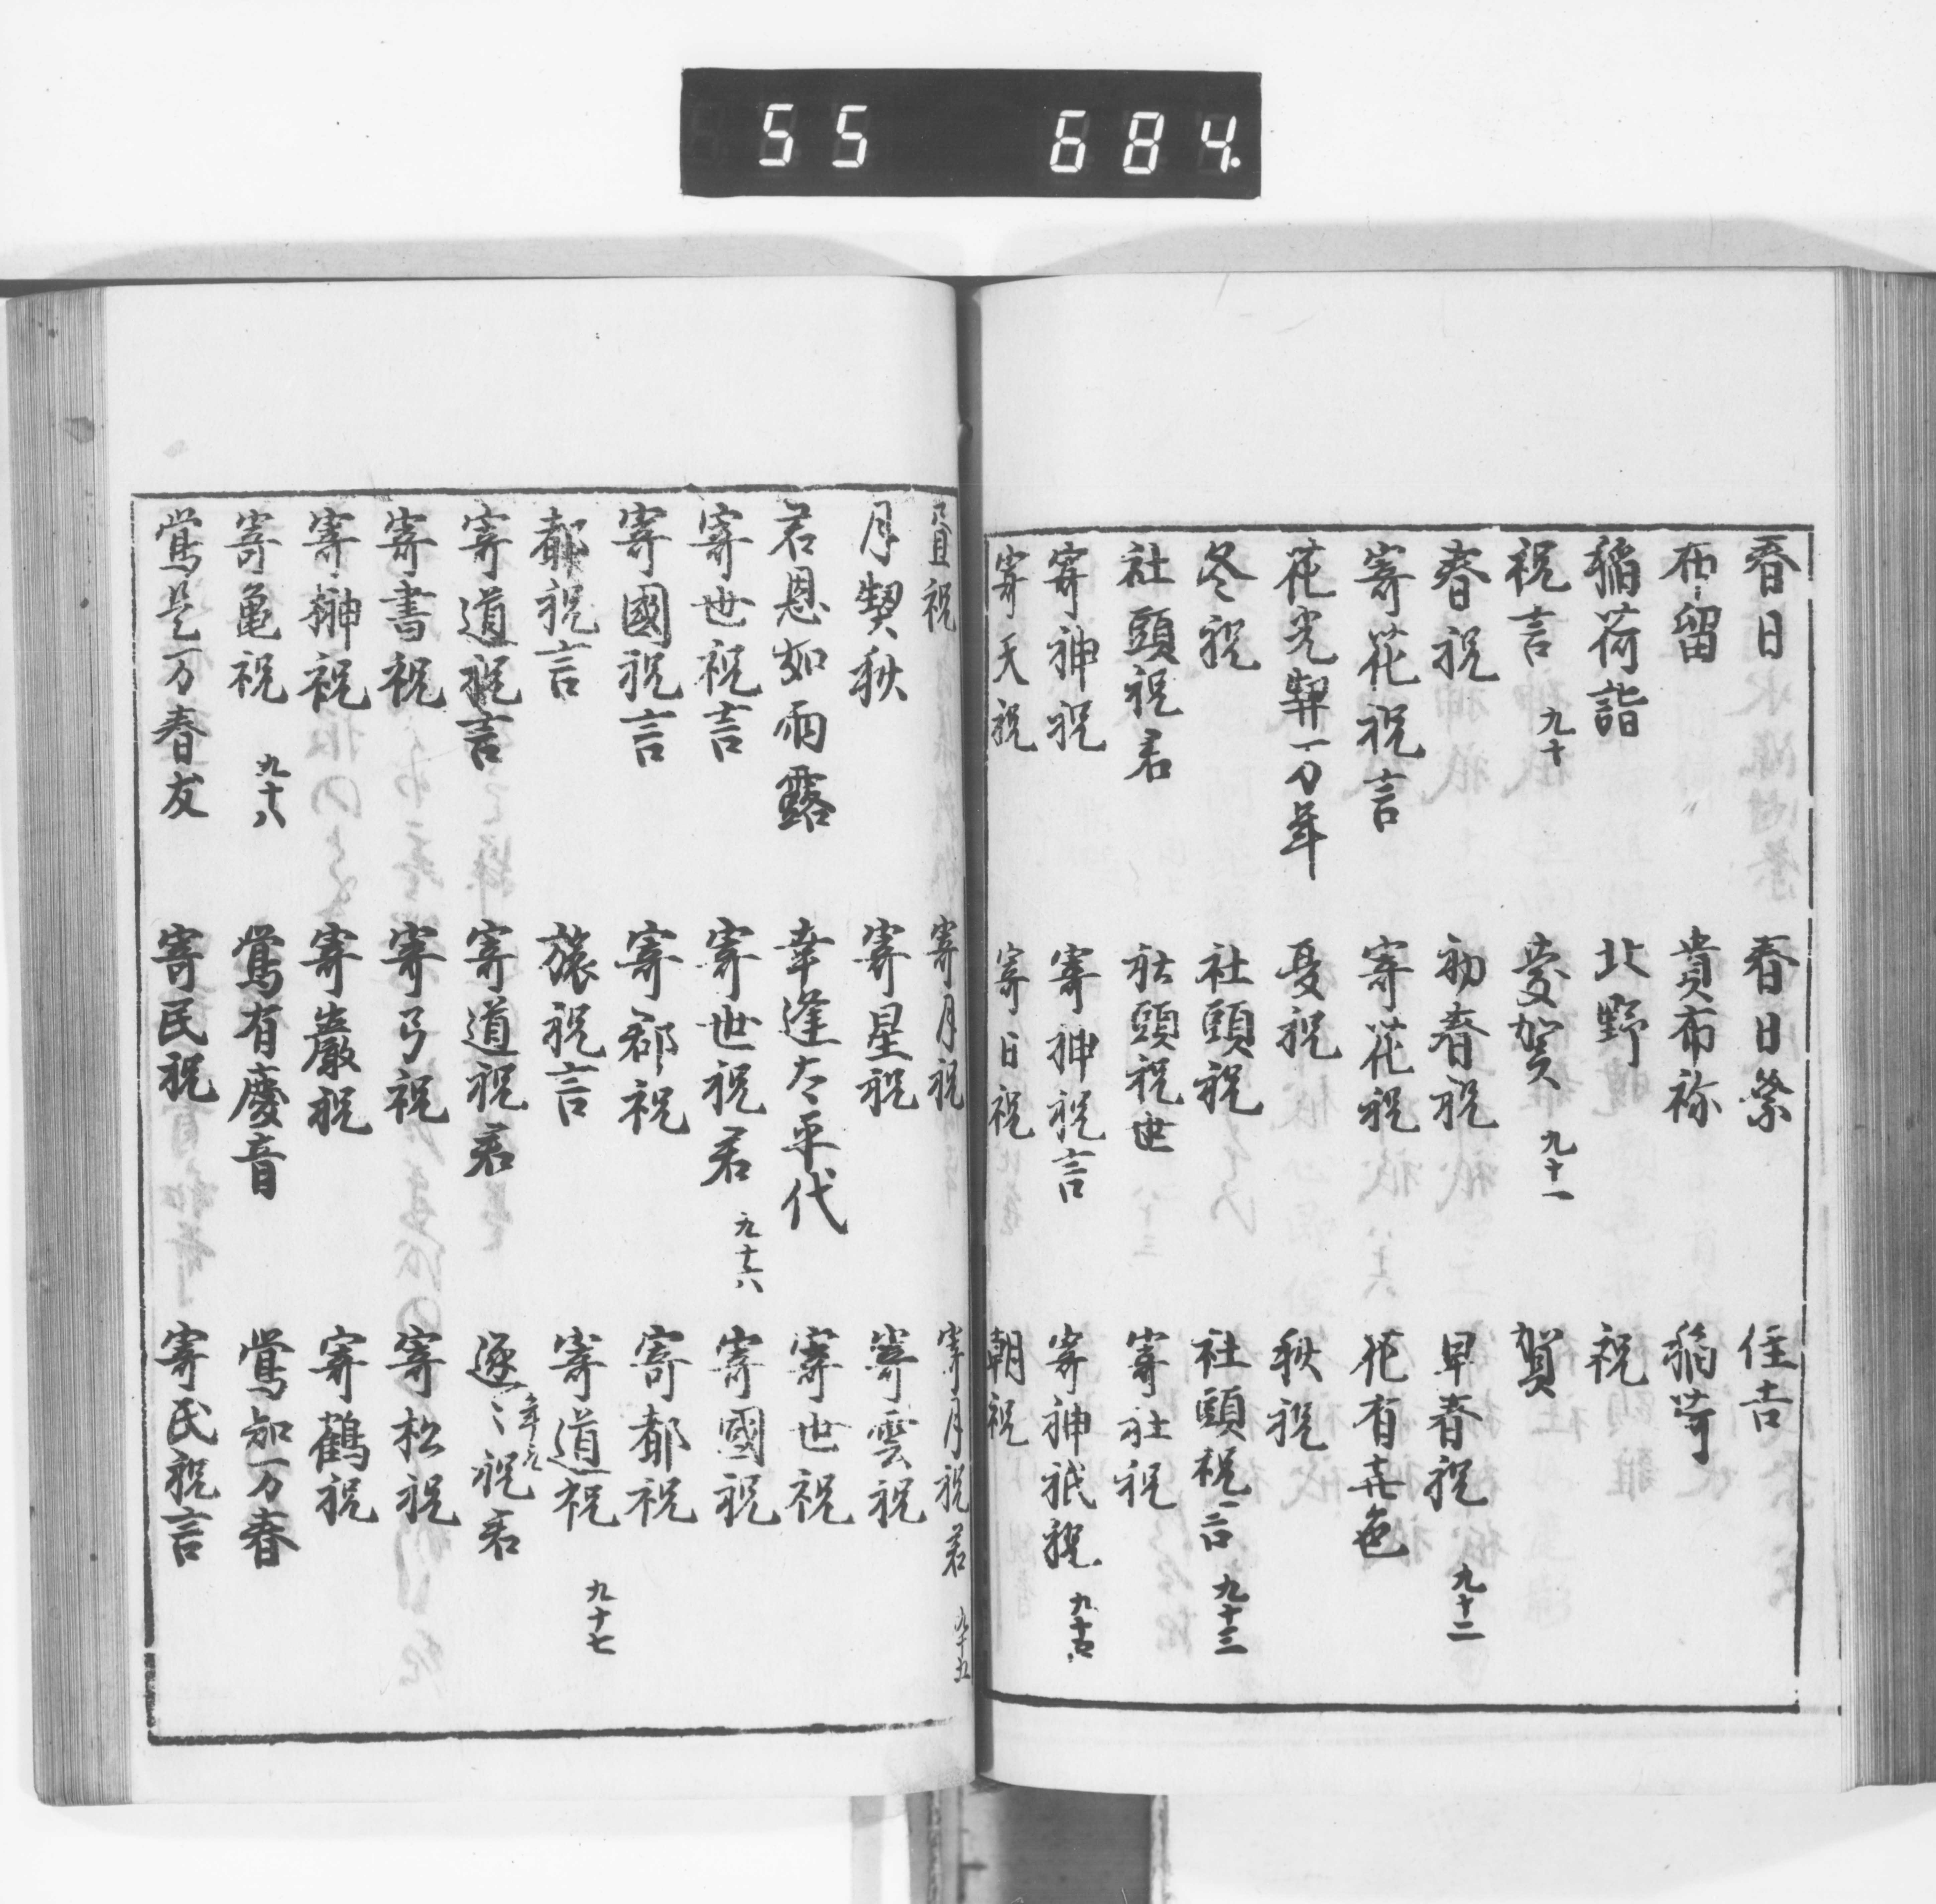 55 684.
春日 春日祭 住吉
布留 貴布祢 稲荷
稲荷詣 北野 祝
祝言 九十 慶賀 九十一 賀
春祝 初春祝 早春祝 九十二
寄花祝言 寄花祝 花有喜色
花光契万年 夏祝 秋祝
冬祝 社頭祝 社頭祝言 九十三
社頭祝君 社頭祝世 寄社祝
寄神祝 寄神祝言 寄神祇祝
寄天祝 寄日祝 朝祝
祝 寄月祝 寄月祝君 九十五
月契秋 寄星祝 寄雲祝
君恩如雨露 幸逢太平代 寄世祝
寄世祝言 寄世祝君 九十六 寄國祝
寄國祝言 寄郡祝 寄都祝
都祝言 旅祝言 寄道祝 九十七
寄道祝言 寄道祝君 逐 祝君
寄書祝 寄弓祝 寄松祝
寄榊祝 寄巌祝 寄鶴祝
寄亀祝 九十八 鶯有慶音 鶯知万春
鶯是万春友 寄民祝 寄民祝言